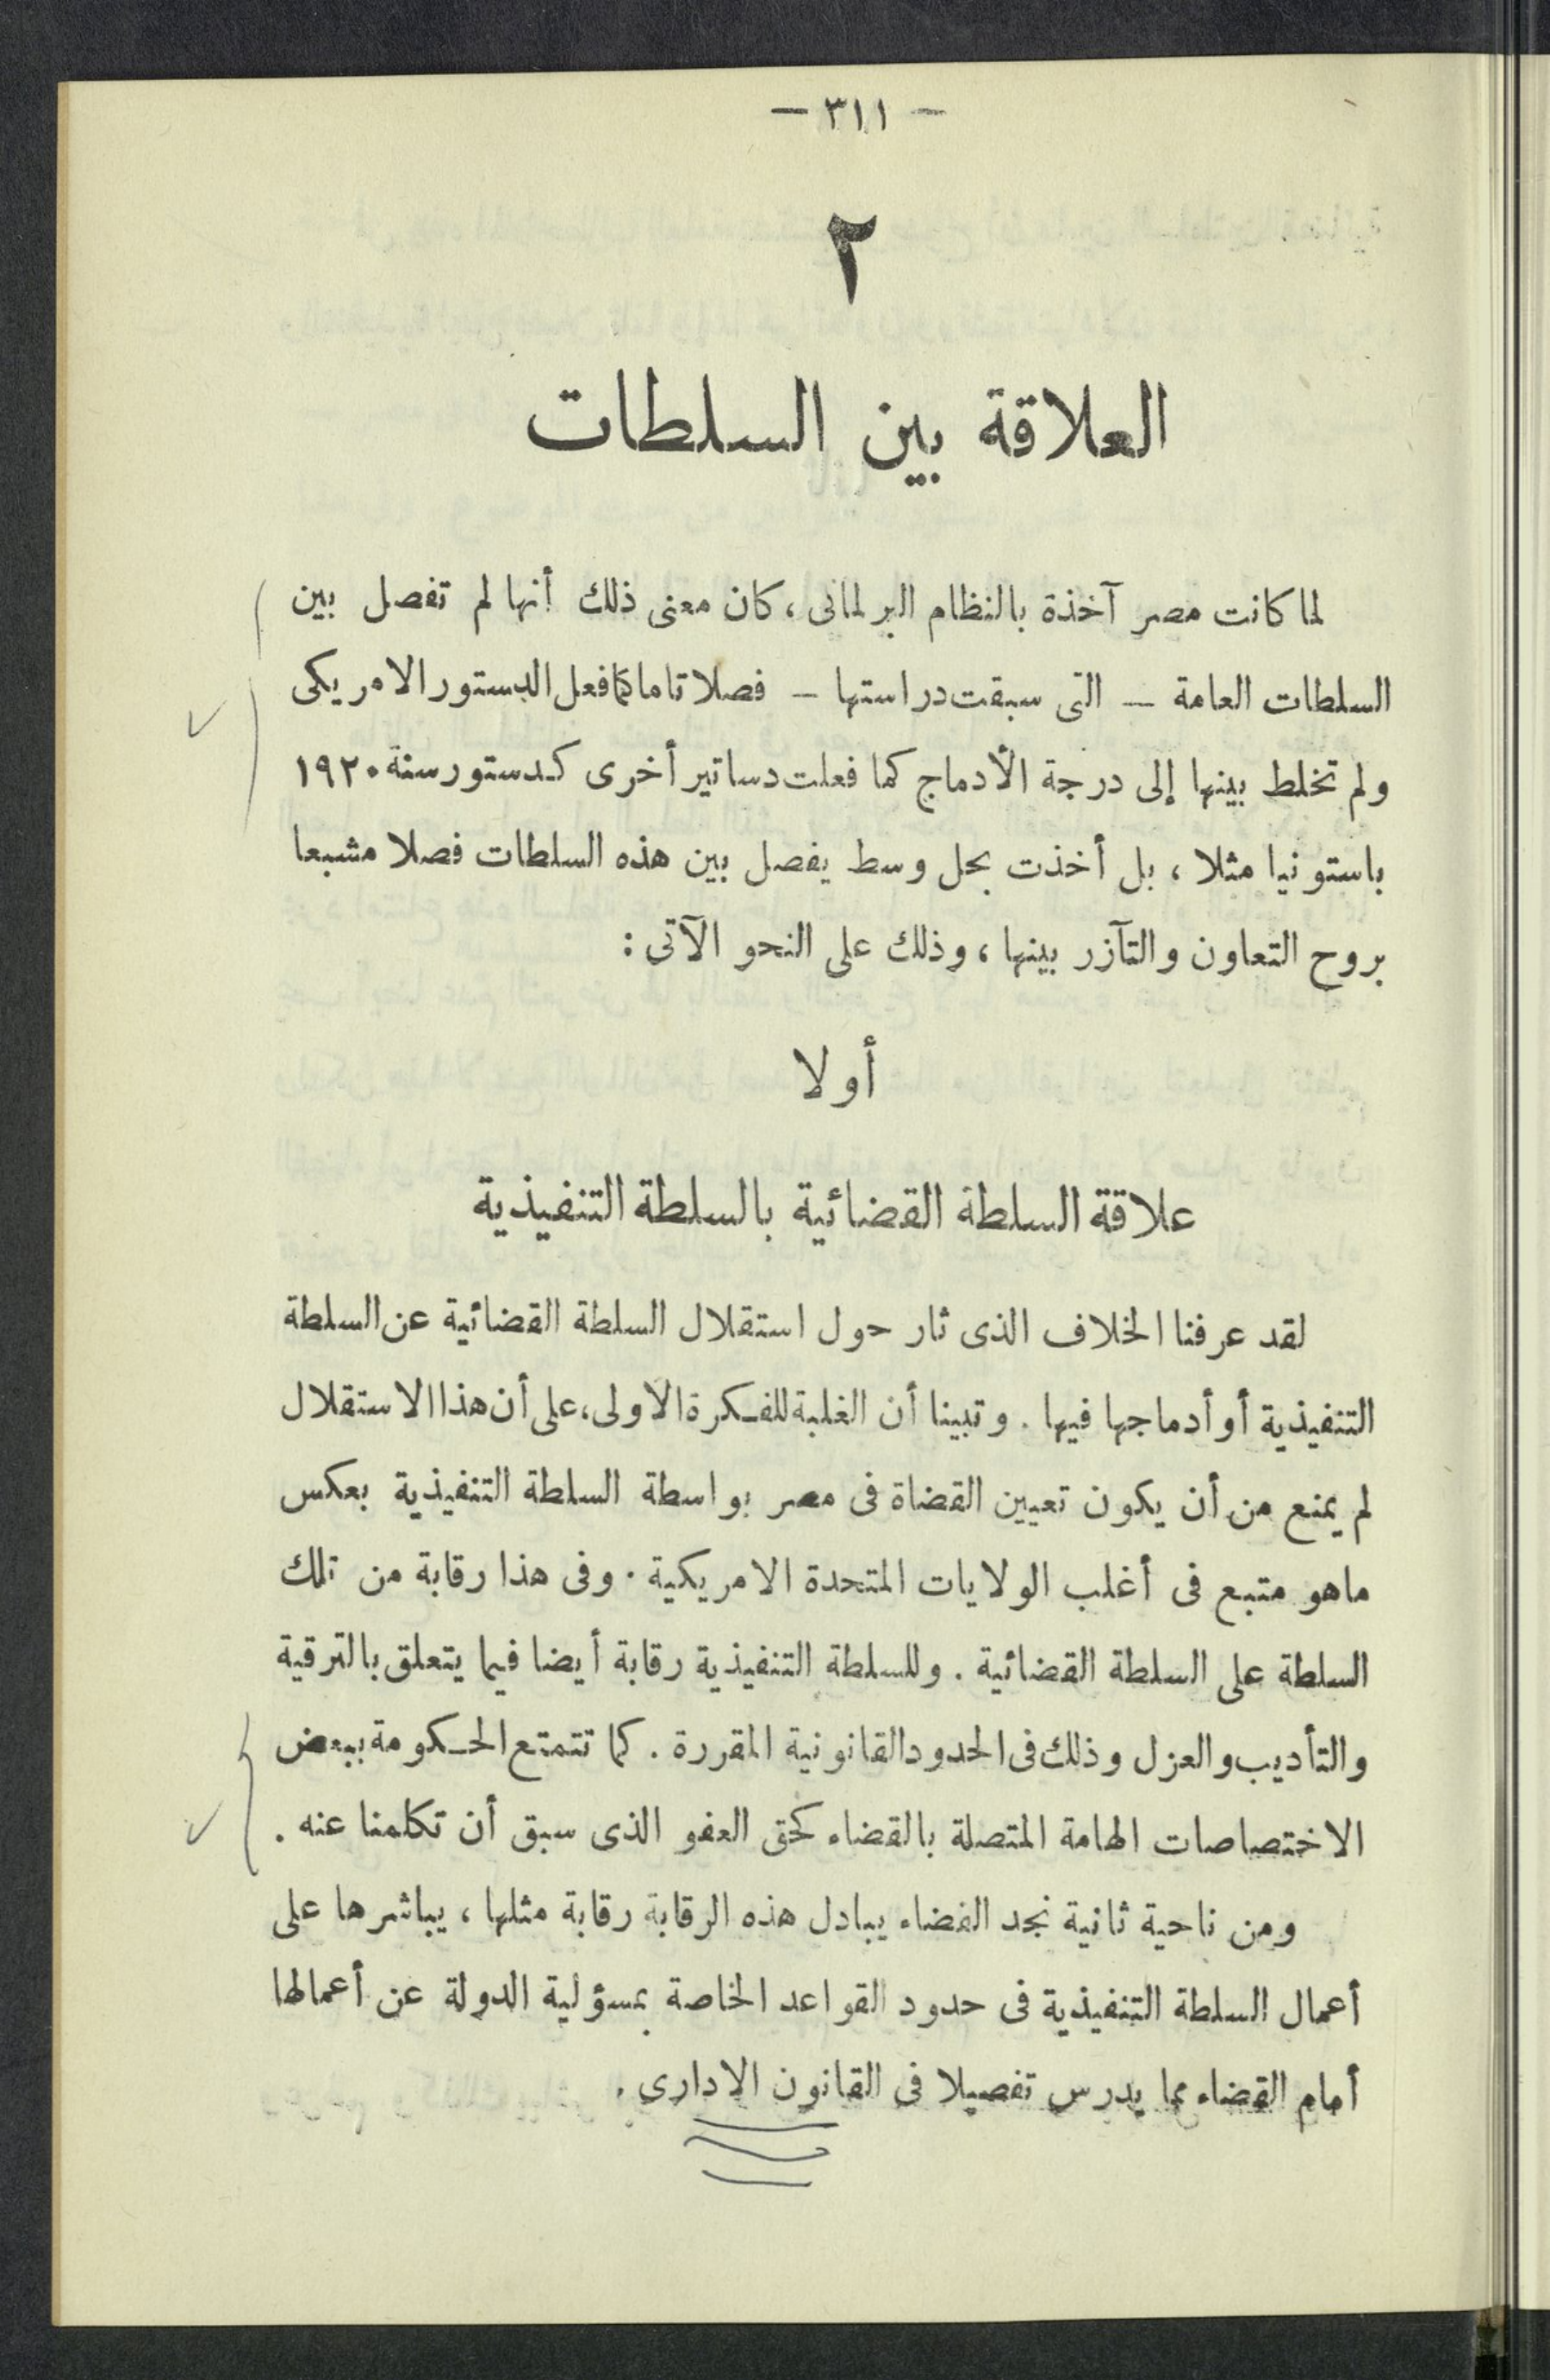 — ٣١١ —
٢
العلاقة بين السلطات
لما كانت مصر آخذة بالنظام البرلمانى ، كان معنى ذلك أنها لم تفصل بين
السلطات العامة — التى سبقت دراستها — فصلا تاما كما فعل الدستور الامريكى
ولم تخلط بينها إلى درجة الأدماج كما فعلت دساتير أخرى كدستور سنة ١٩٢٠
باستونيا مثلا ، بل أخذت بحل وسط يفصل بين هذه السلطات فصلا مشبعا
بروح التعاون والتآزر بينها ، وذلك على النحو الآتى :
أولا
علاقة السلطة القضائية بالسلطة التنفيذية
لقد عرفنا الخلاف الذى ثار حول استقلال السلطة القضائية عن السلطة
التنفيذية أو أدماجها فيها . وتبينا أن الغلبة للفكرة الأولى، على أن هذا الاستقلال
لم يمنع من أن يكون تعيين القضاة فى مصر بواسطة السلطة التنفيذية بعكس
ماهو متبع فى أغلب الولايات المتحدة الامريكية . وفى هذا رقابة من تلك
السلطة على السلطة القضائية . وللسلطة التنفيذية رقابة أيضا فيما يتعلق بالترقية
والتأديب والعزل وذلك فى الحدود القانونية المقررة . كما تتمتع الحكومة ببعض
الاختصاصات الهامة المتصلة بالقضاء كحق العفو الذى سبق أن تكلمنا عنه .
ومن ناحية ثانية نجد القضاء يبادل هذه الرقابة رقابة مثلها ، يباشرها على
أعمال السلطة التنفيذية فى حدود القواعد الخاصة بمسؤلية الدولة عن أعمالها
أمام القضاء مما يدرس تفصيلا فى القانون الادارى .